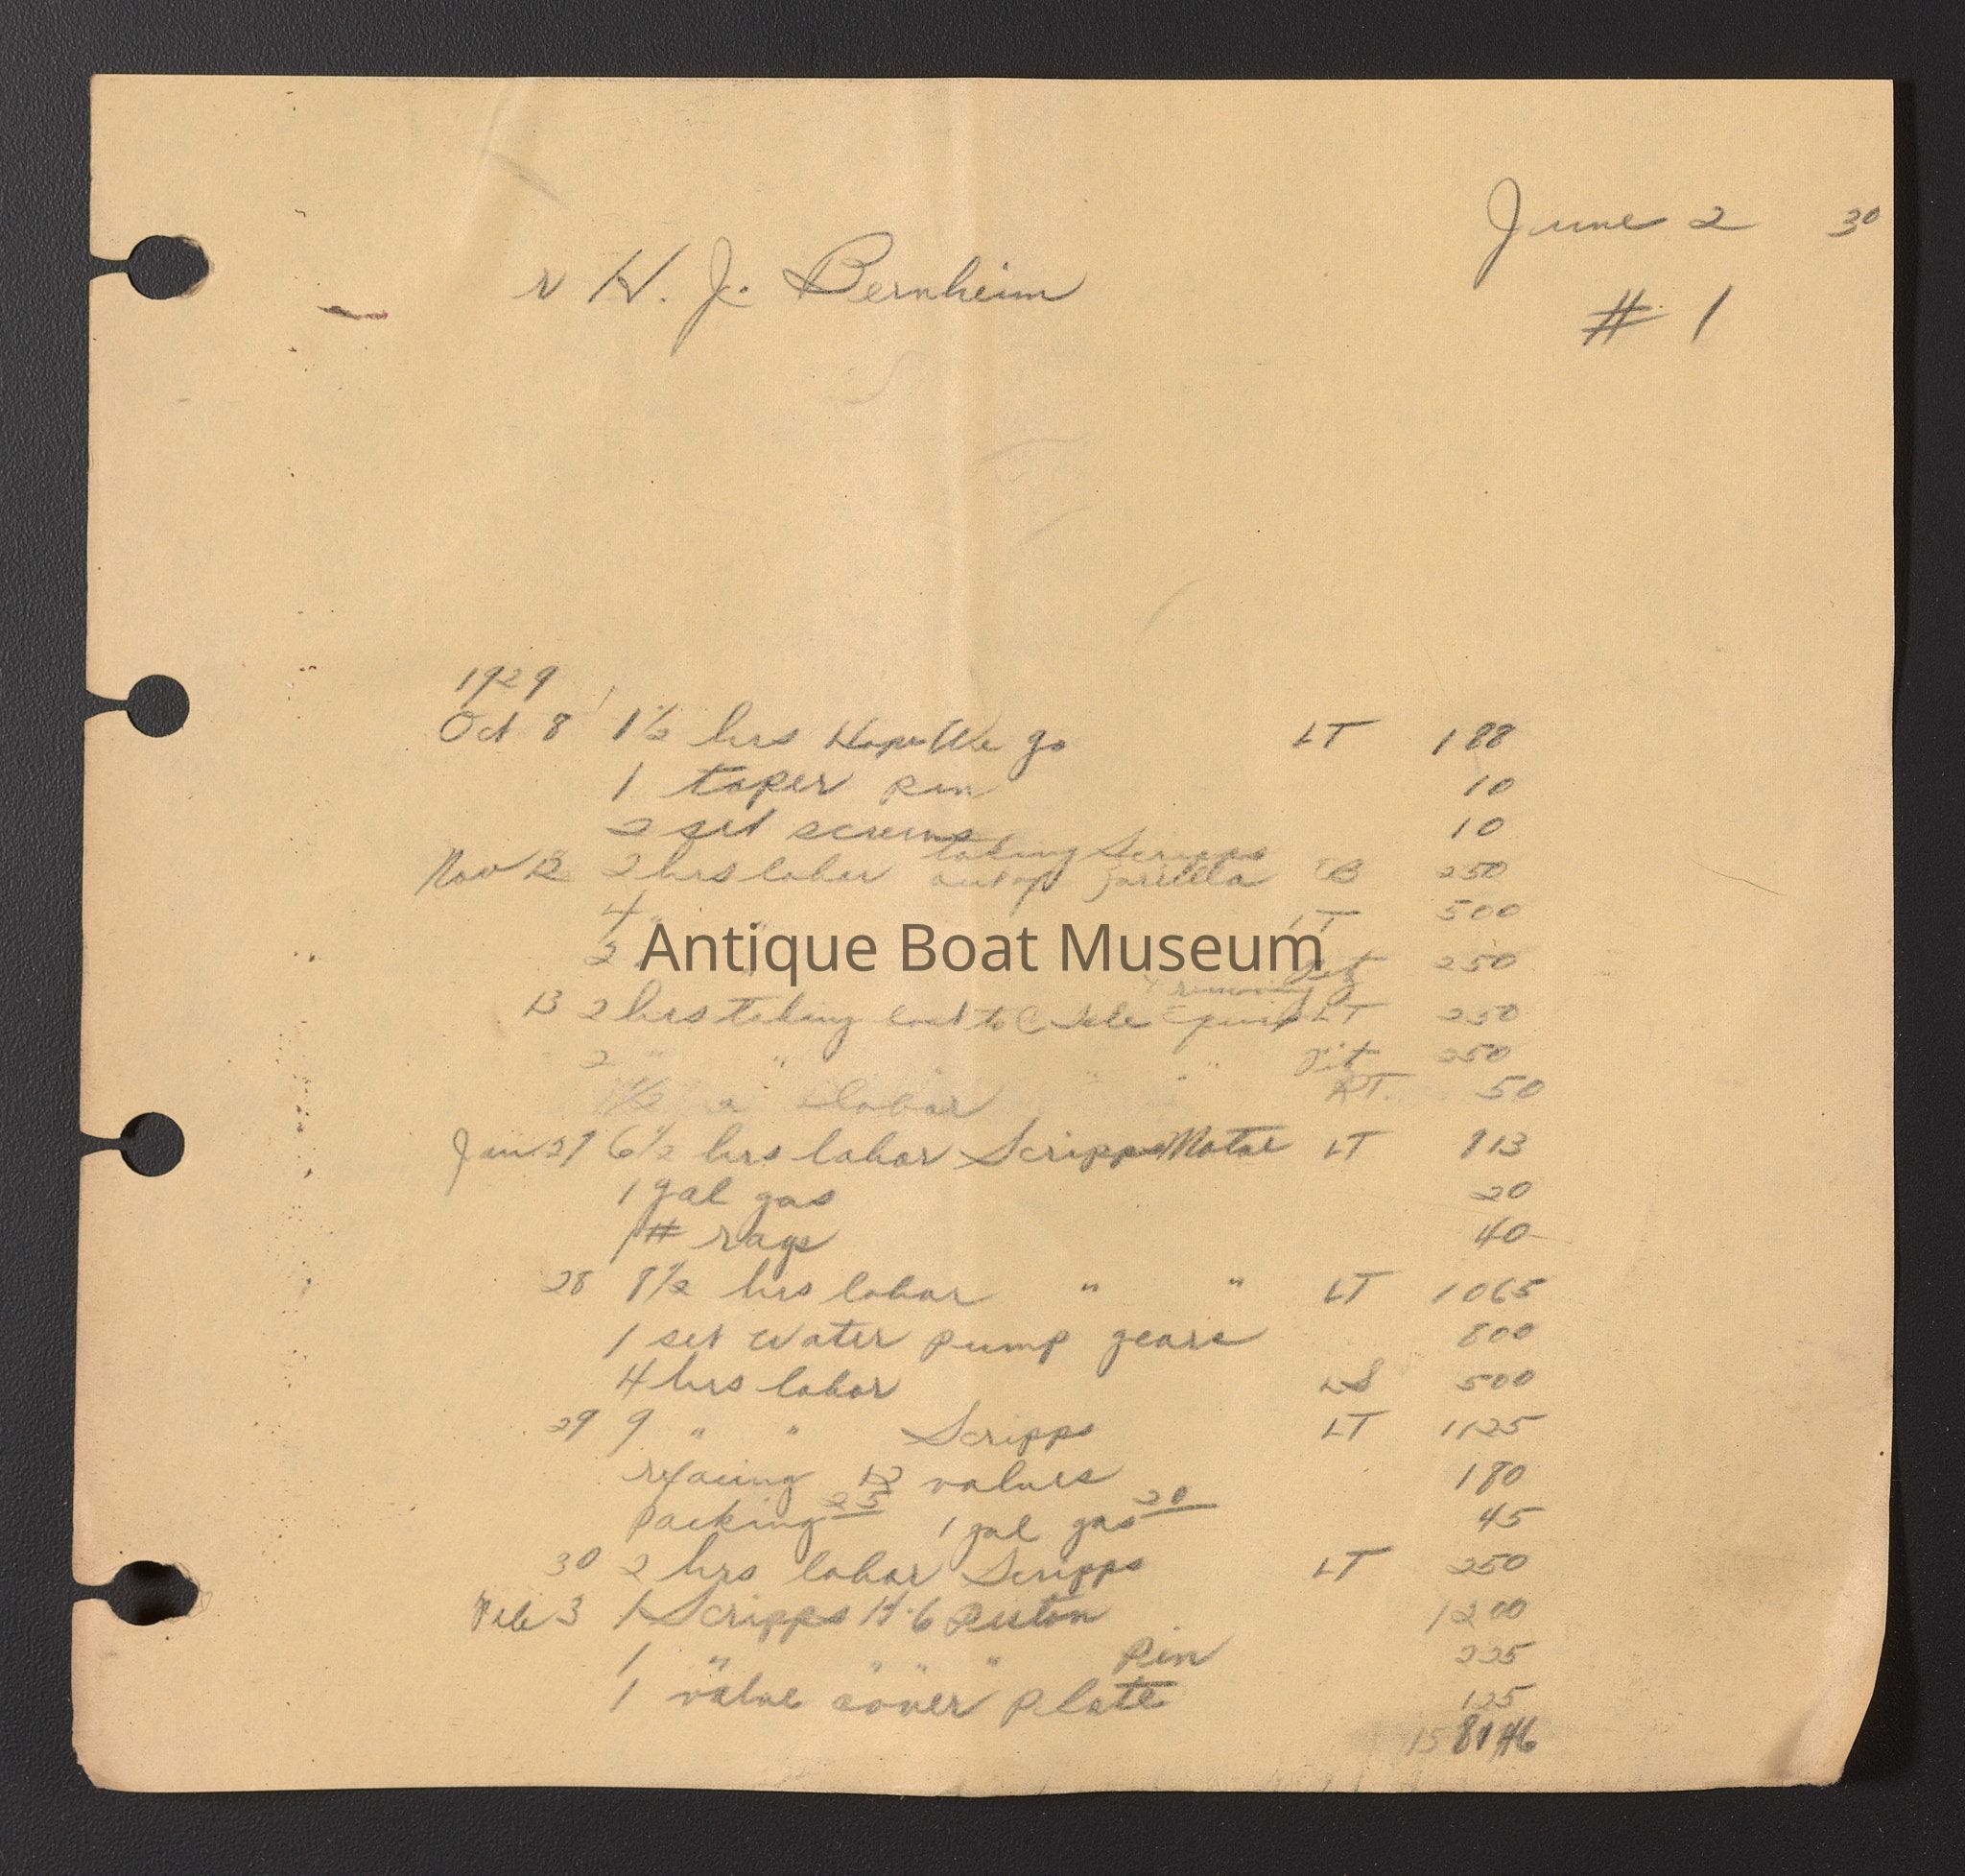 June 2 30
H. J. Bernheim
# 1
1929
Oct 8 1 1/2 hrs Hope We go LT 1 88
1 taper pin 10
2 set screws 10
taking Scripps
Nov 12 2 hrs labor out of B 2 50
4 " " LT 5 00
Antique Boat Museum
2 2 50
& removing
13 2 hrs taking boat to C Isle Equip LT 2 50
2 " " " " Fit 2 50
1/2 " labor RT. 50
Jan 27 6 1/2 hrs labor Scripps Motor LT 8 13
1 gal gas 20
1 # rags 40
28 8 1/2 hrs labor " " LT 10 65
1 set water pump gears 8 00
4 hrs labor LS 5 00
29 9 " " Scripps LT 11 25
refacing 12 valves 1 80
packing 25 1 gal gas 20 45
30 2 hrs labor Scripps LT 2 50
Feb 3 1 Scripps H-6 Piston 12 00
1 " " " " Pin 2 25
1 valve cover plate 1 25
81 46